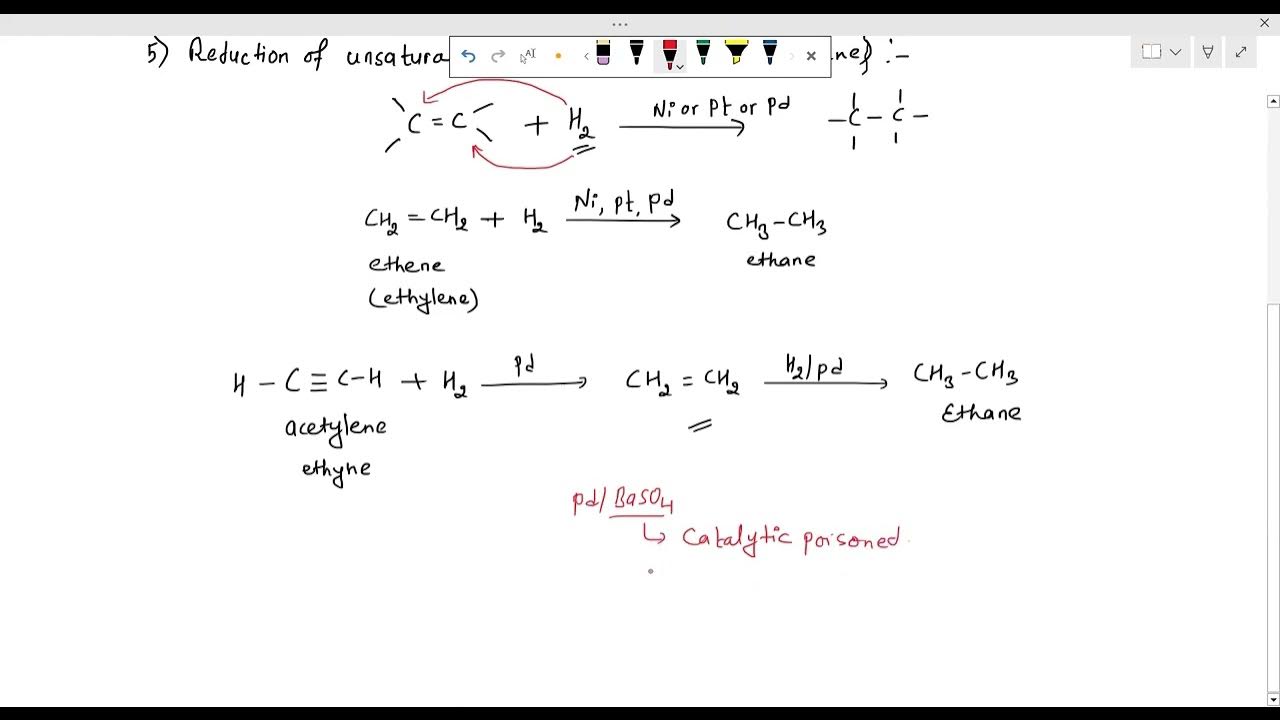 5) Reduction of unsatura ne} :-
C = C + H2 Ni or Pt or Pd -C-C-
CH2 = CH2 + H2 Ni, Pt, Pd CH3-CH3
ethene ethane
(ethylene)
H - C ≡ C-H + H2 Pd CH2 = CH2 H2/pd CH3-CH3
acetylene Ethane
ethyne
pd/BaSO4
↳ Catalytic poisoned